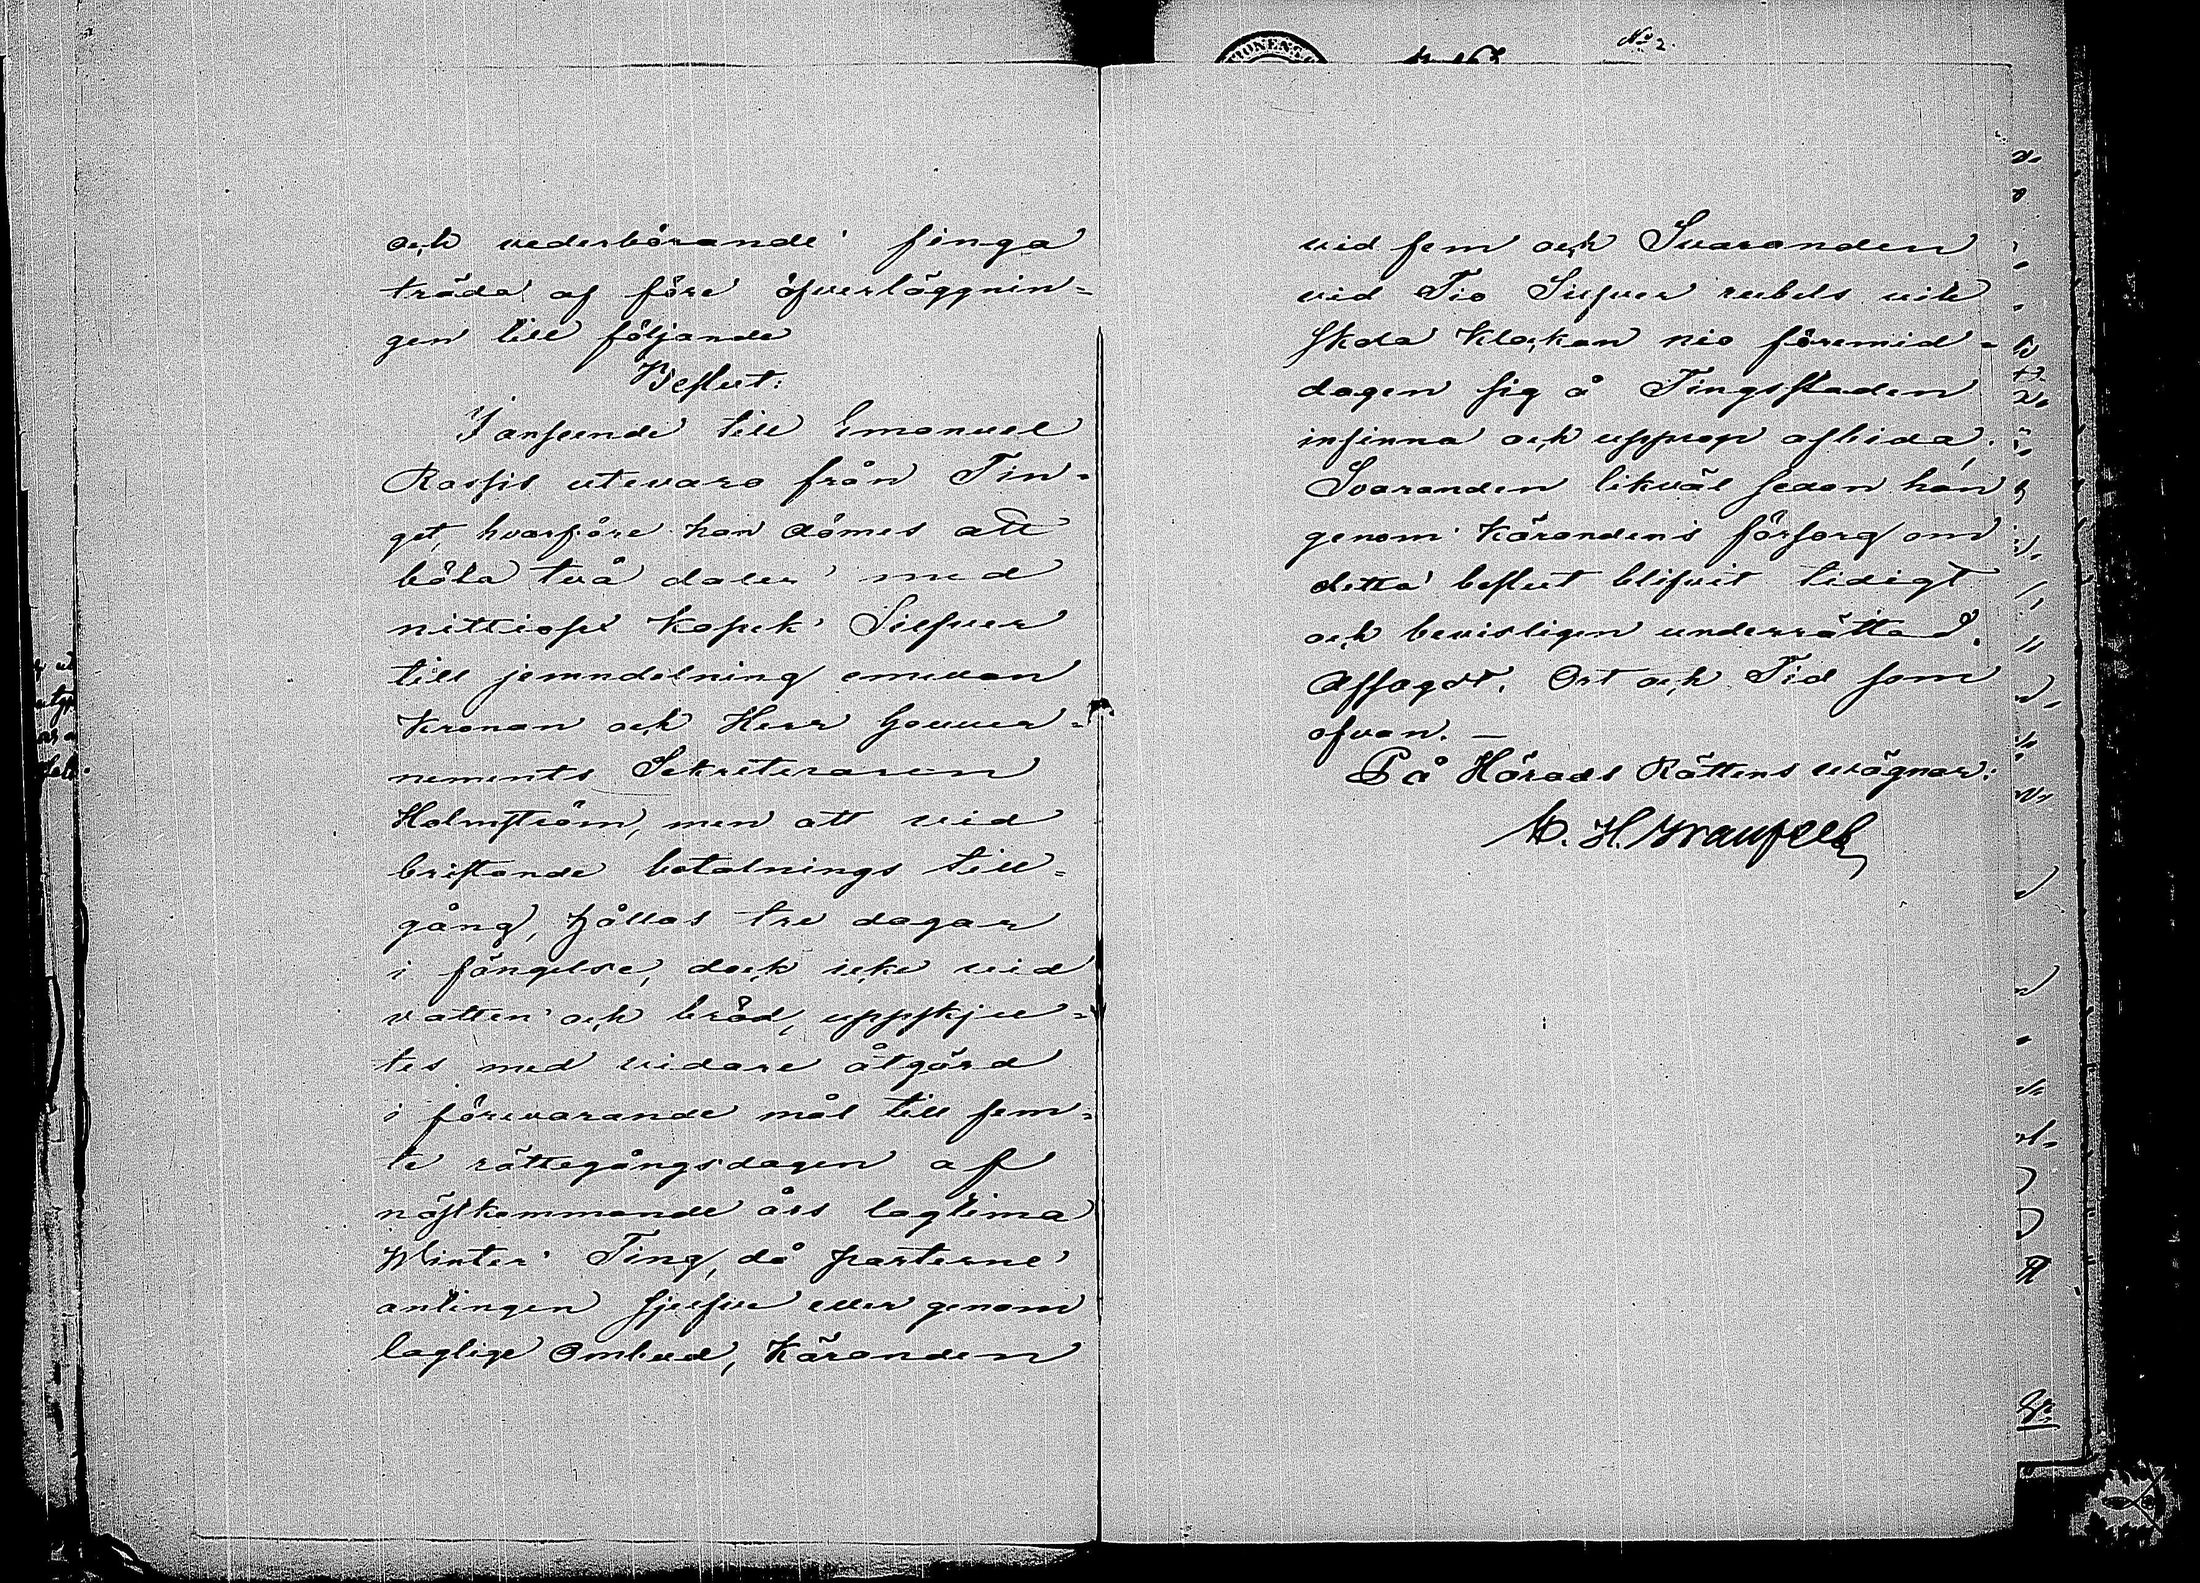 No 2.
och vederbörande finga
träda af före öfverläggnin=
gen till följande
Beslut:
I anseende till Emanuel
Rossis utevaro från Tin=
get, hvarföre han dömes att
böta två daler med
nittiosex kopek Silfver
till jemndelning emellan
Kronan och Herr Gouver=
nements Sekreteraren
Holmström, men att vid
bristande betalnings till=
gång, hållas tre dagar
i fängelse, dock icke vid
vatten och bröd, uppskju=
tes med vidare åtgärd
i förevarande mål till fem=
te rättegångsdagen af
nästkommande års lagtima
Winter Ting, då parterne
antingen sjelfve eller genom
laglige Ombud, Käranden
vid fem och Svaranden
vid Tio Silfver rubels vite
skola klockan nio föremid=
dagen sig å Tingsstaden
infinna och upprop afbida,
Svaranden likväl sedan han
genom Kärandens försorg om
detta beslut blifvit tidigt
och bevisligen underrättad.
Afsagdt, Ort och Tid som
ofvan. —
På Härads Rättens vägnar: